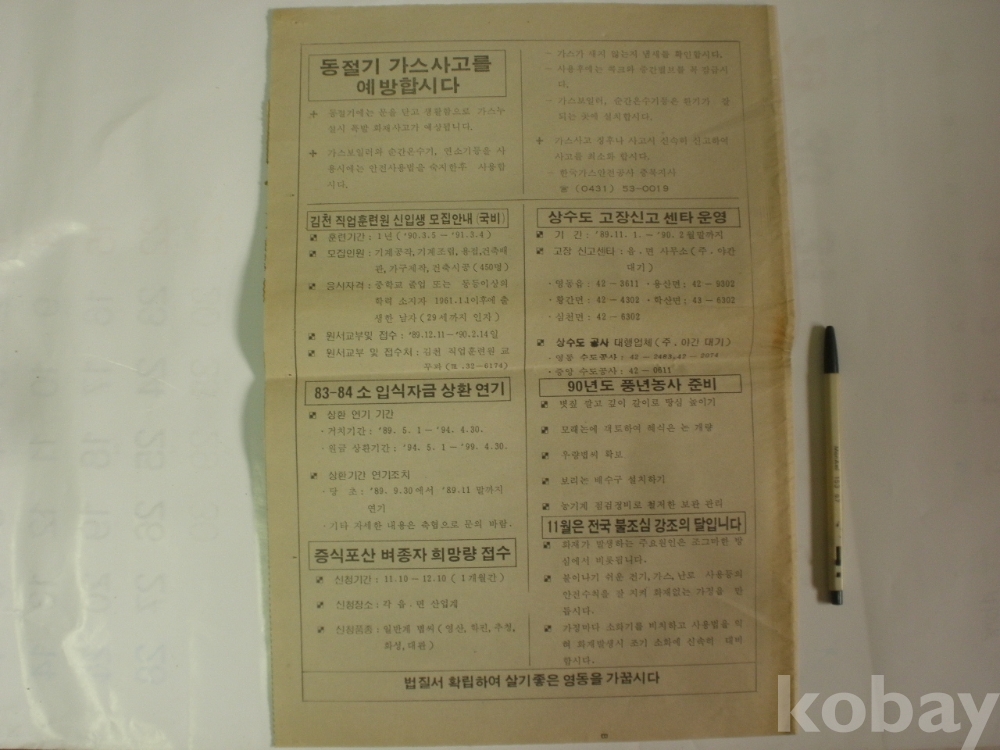 동절기 가스사고를
예방합시다
동절기에는 문을 닫고 생활함으로 가스누
설시 폭발 화재사고가 예상됩니다.
가스보일러와 순간온수기, 연소기등을 사
용시에는 안전사용법을 숙지한후 사용합
시다.
- 가스가 새지 않는지 냄새를 확인합시다.
- 사용후에는 콕크와 중간밸브를 꼭 잠급시
다.
- 가스보일러, 순간온수기등은 환기가 잘
되는 곳에 설치합시다.
가스사고 징후나 사고시 신속히 신고하여
사고를 최소화 합시다.
- 한국가스안전공사 충북지사
☎ (0431) 53-0019
김천 직업훈련원 신입생 모집안내 (국비)
훈련기간 : 1년 ('90.3.5 - '91.3.4)
모집인원 : 기계공작, 기계조립, 용접, 건축배
관, 가구제작, 건축시공 (450명)
응시자격 : 중학교 졸업 또는 동등이상의
학력 소지자 1961.1.1이후에 출
생한 남자 (29세까지 인자)
원서교부및 접수 : '89.12.11 - '90.2.14일
원서교부 및 접수처 : 김천 직업훈련원 교
무과 (☎.32-6174)
83-84 소 입식자금 상환 연기
상환 연기 기간
· 거치기간 : '89. 5. 1 - '94. 4. 30.
· 원금 상환기간 : '94. 5. 1 - '99. 4. 30.
상환기간 연기조치
· 당 초 : '89. 9.30에서 '89.11 말까지
연기
· 기타 자세한 내용은 축협으로 문의 바람.
증식포산 벼종자 희망량 접수
신청기간 : 11.10 - 12.10 ( 1개월간)
신청장소 : 각 읍. 면 산업계
신청품종 : 일반계 볍씨 (영산, 적진, 추청,
화성, 대관)
상수도 고장신고 센타 운영
기 간 : '89.11. 1. - '90. 2월말까지
고장 신고센타 : 읍. 면 사무소 (주. 야간
대기)
· 영동읍 : 42-2611 · 용산면 : 42-5302
· 황간면 : 42-4302 · 학산면 : 43-6302
· 심천면 : 42-6302
상수도 공사 대행업체 (주. 야간 대기)
· 영동 수도공사 : 42-2463, 42-2074
· 중앙 수도공사 : 42-0611
90년도 풍년농사 준비
볏짚 깔고 깊이 갈이로 땅심 높이기
모래논에 객토하여 헤식은 논 개량
우량볍씨 확보
보리논 배수구 설치하기
농기계 점검정비로 철저한 보관 관리
11월은 전국 불조심 강조의 달입니다
화재가 발생하는 주요원인은 조그마한 방
심에서 비롯됩니다.
불이나기 쉬운 전기, 가스, 난로 사용등의
안전수칙을 잘 지켜 화재없는 가정을 만
듭시다.
가정마다 소화기를 비치하고 사용법을 익
혀 화재발생시 조기 소화에 신속히 대비
합시다.
법질서 확립하여 살기좋은 영동을 가꿉시다
kobay